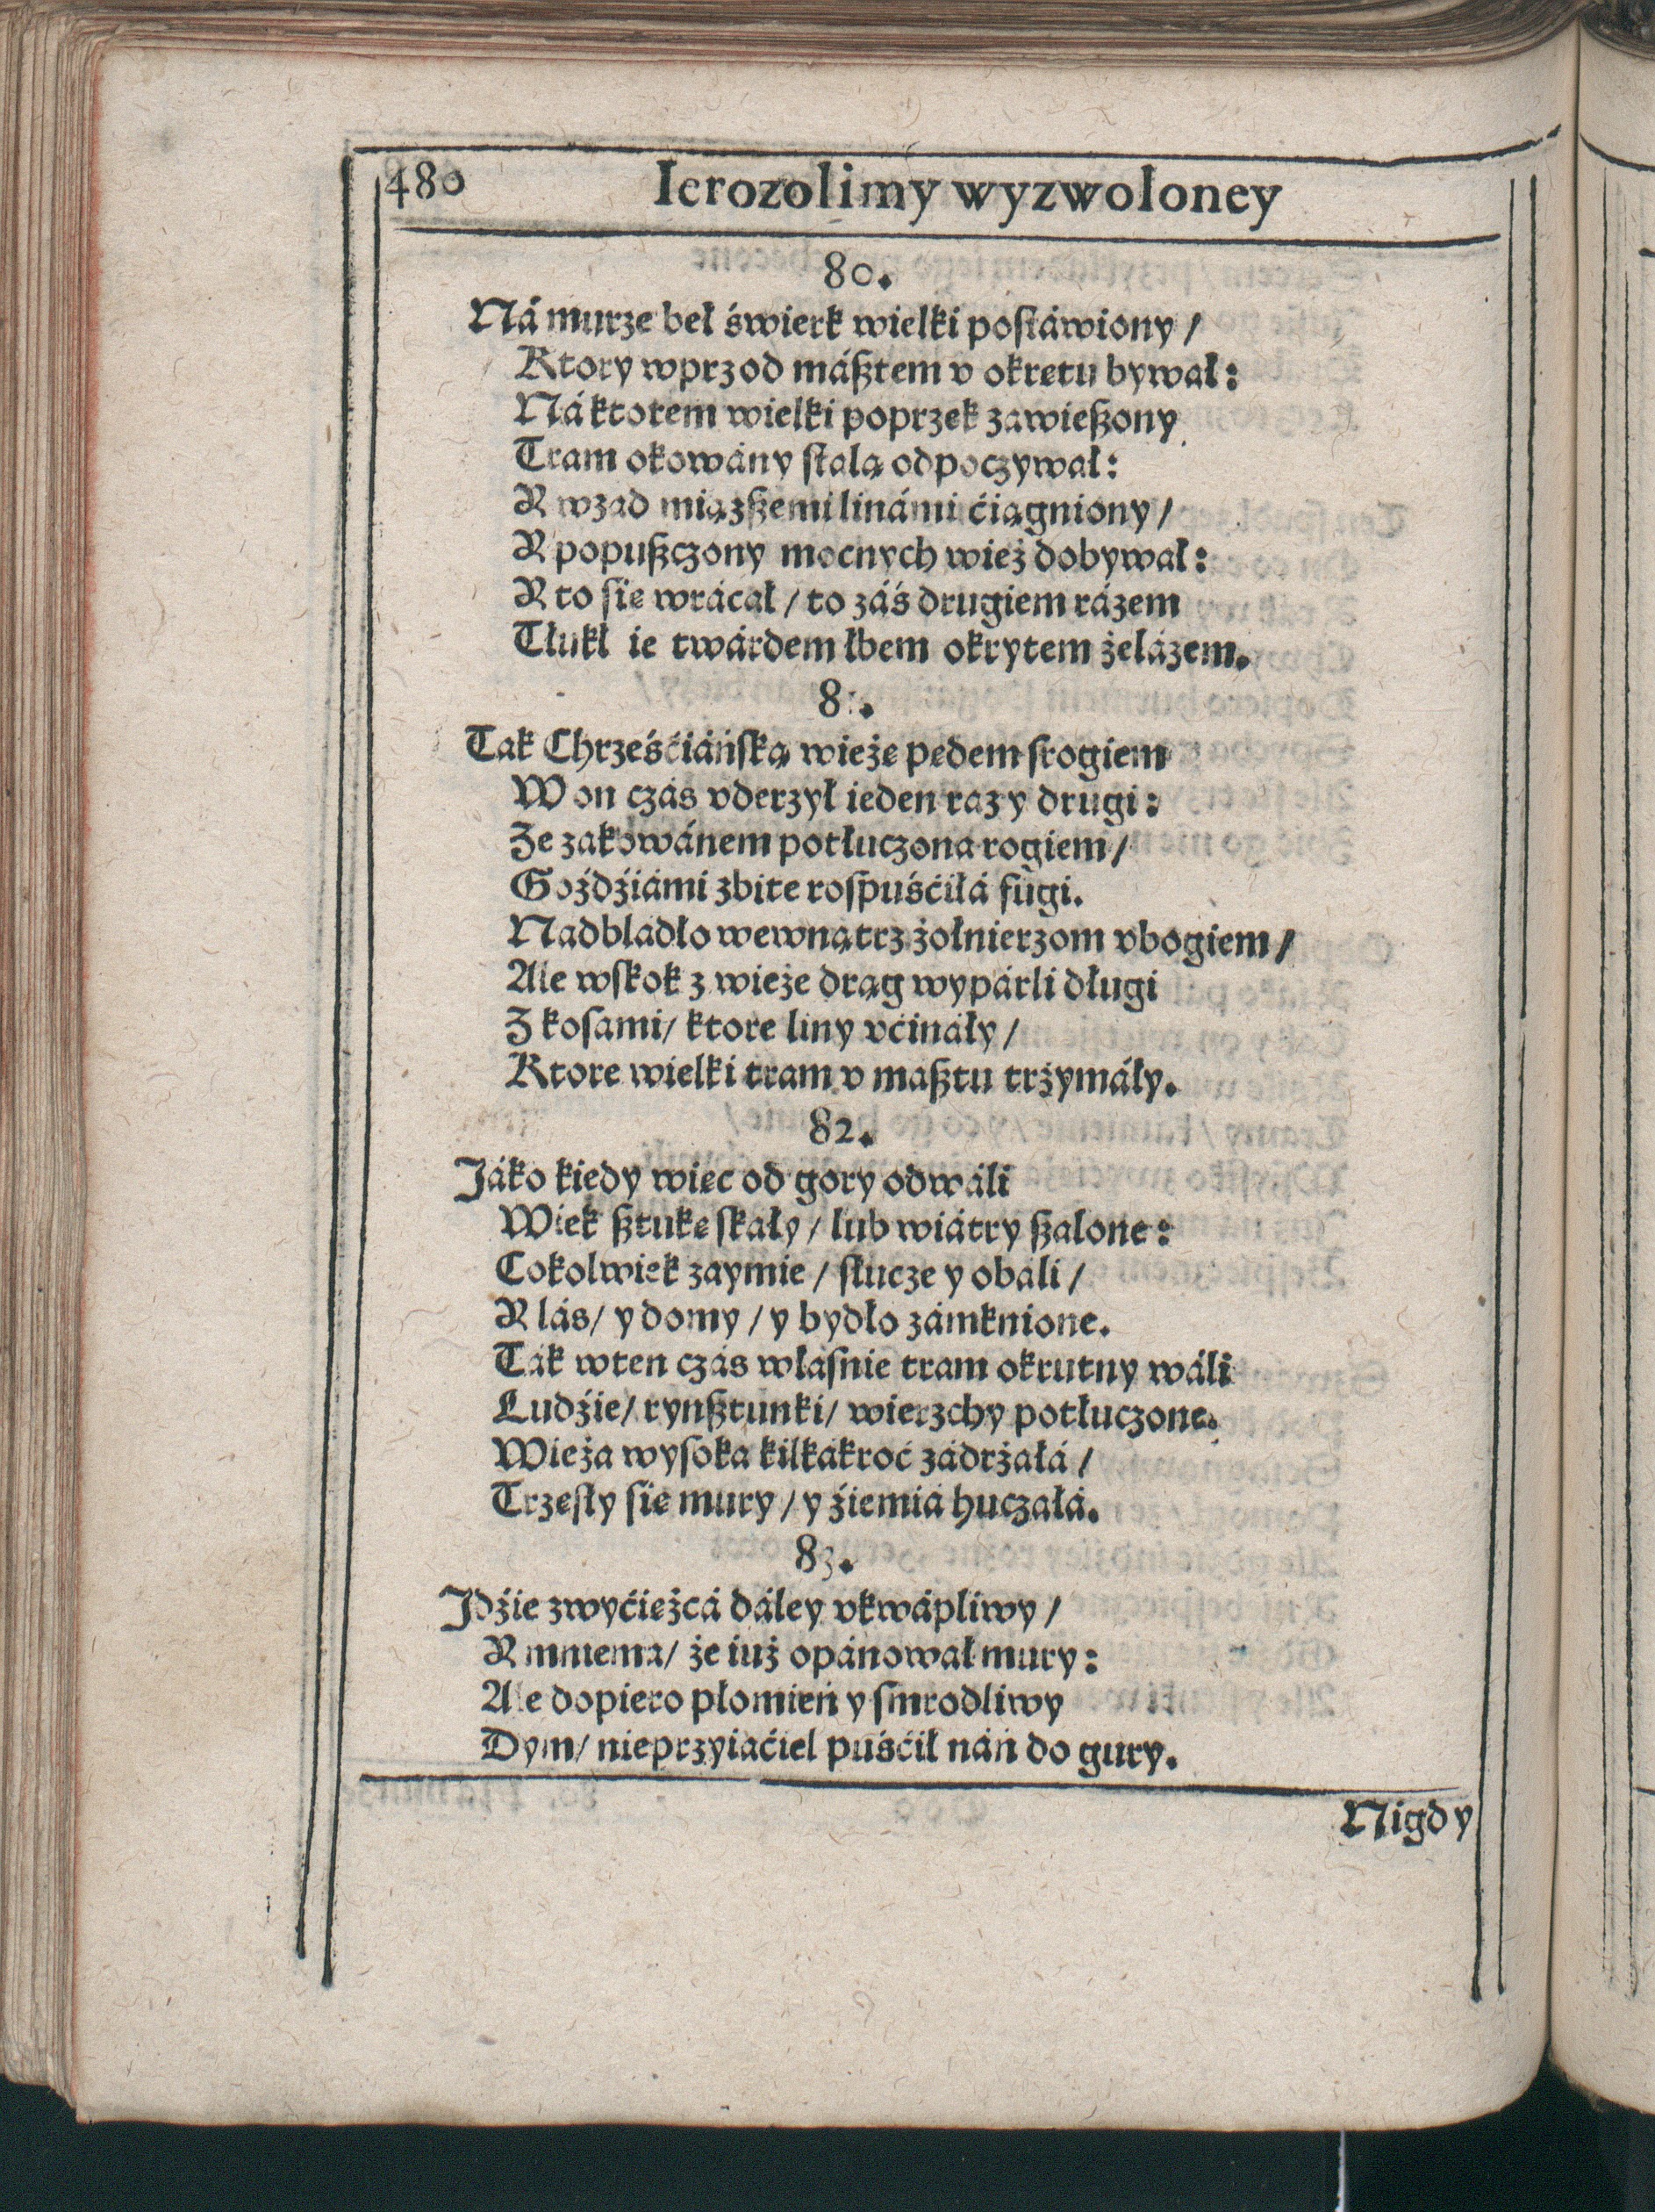 480 Ierozolimy wyzwoloney
80.
Ná murze beł świerk wielki postáwiony /
Ktory wprzod másztem v okrętu bywał:
Ná ktorem wielki poprzek zawieszony
Tram okowány stalą odpoczywał:
Y wzad miąższemi linámi ćiągniony /
Y popuszczony mocnych wież dobywał:
Y to się wrácał / to záś drugiem rázem
Tłukł ie twárdem łbem okrytem żelázem.
81.
Tak Chrześćiáńską wieżę pędem srogiem
W on czás vderzył ieden raz y drugi:
Że zakowánem potłuczona rogiem /
Goźdźiámi zbite rospuśćiłá fugi.
Nadbladło wewnątrz żołnierzom vbogiem /
Ale wskok z wieże drąg wypárli długi
Z kosami / ktore liny vćináły /
Ktore wielki tram v masztu trzymáły.
82.
Jáko kiedy więc od gory odwáli
Wiek sztukę skáły / lub wiátry szalone:
Cokolwiek zaymie / stłucze y obali /
Y lás / y domy / y bydło zámknione.
Ták w ten czás właśnie tram okrutny wáli
Ludźie / rynsztunki / wierzchy potłuczone.
Wieża wysoka kilkákroć zádrżałá /
Trzęsły się mury / y źiemiá huczáłá.
83.
Jdźie zwyćięzcá dáley vkwápliwy /
Y mniema / że iuż opánował mury:
Ale dopiero płomień y smrodliwy
Dym / nieprzyiaćiel puśćił nań do gury.
Nigdy